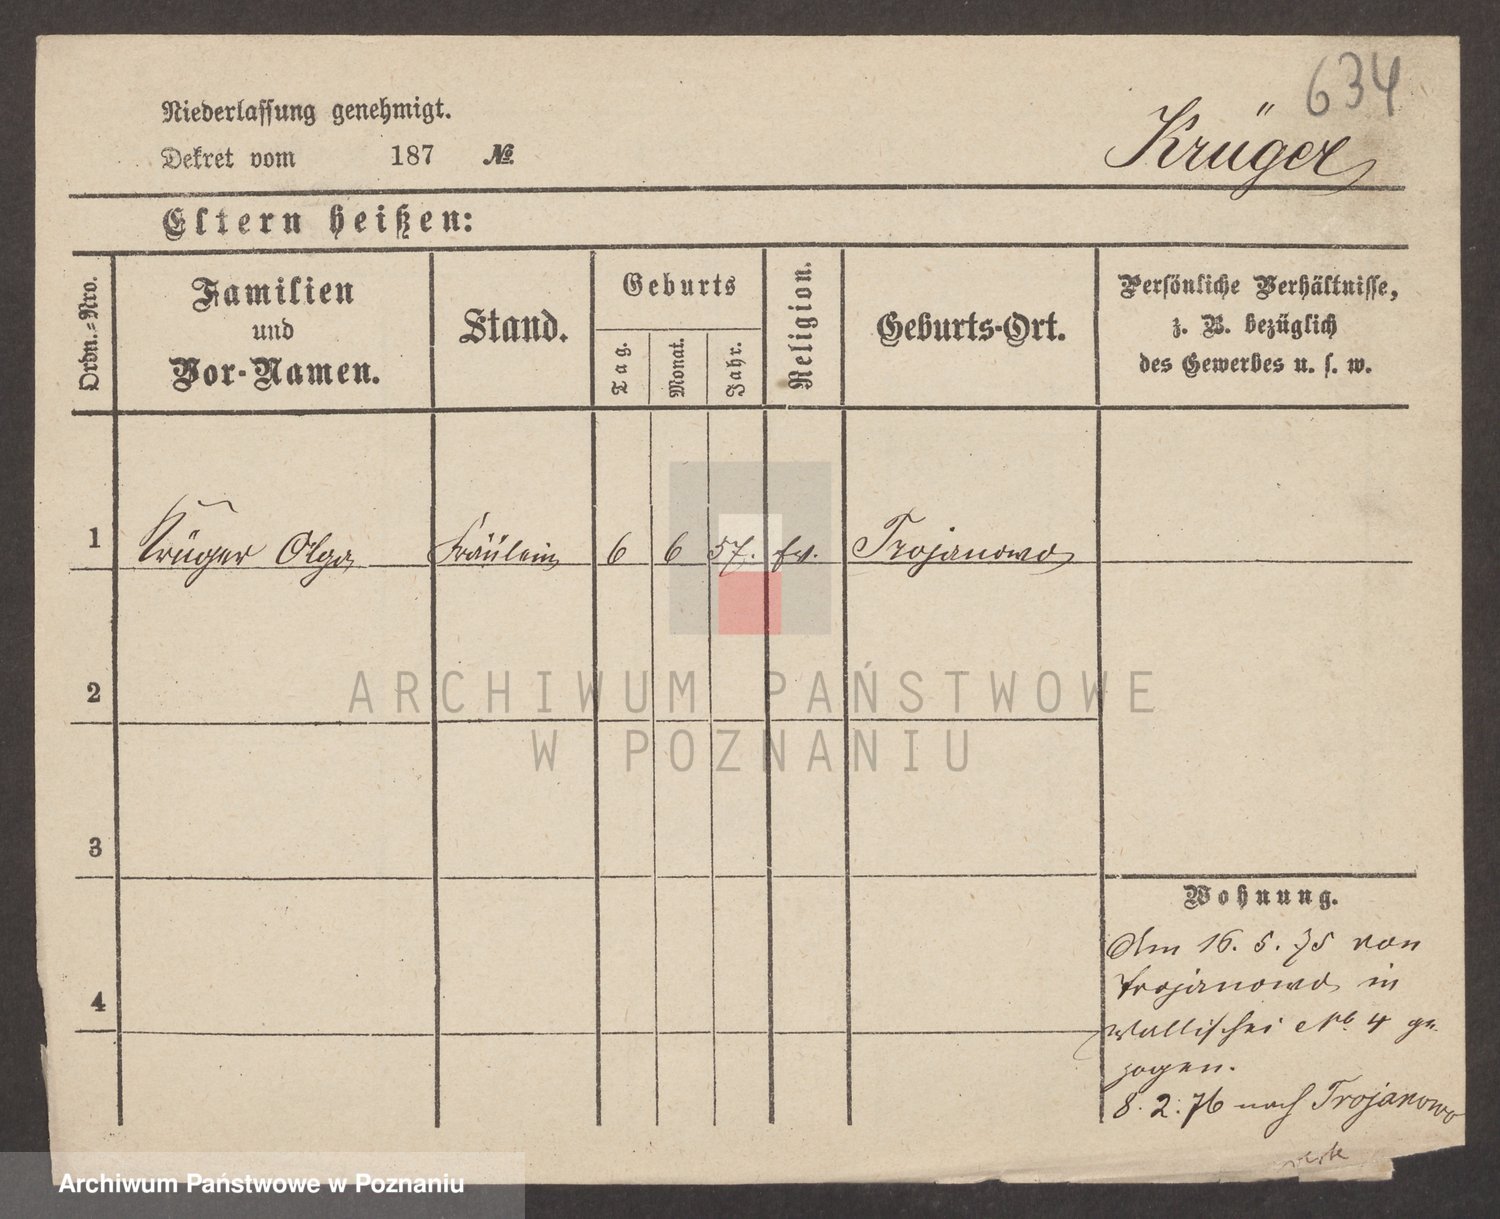 634
Niederlassung genehmigt.
Krüger
Dekret vom 187 №
Eltern heißen:
Ordn.-Nro.
Familien
und
Vor-Namen.
Stand.
Geburts
Tag.
Monat.
Jahr.
Religion.
Geburts-Ort.
Persönliche Verhältnisse,
z. B. bezüglich
des Gewerbes u. s. w.
1 Krüger Olga Fräulein 6 6 57. ev. Trojanowo
2
ARCHIWUM PAŃSTWOWE
W POZNANIU
3
Wohnung.
Am 16. 5. 75 von
Trojanowo in
Wallischei No. 4 ge-
zogen.
4
8. 2. 76 nach Trojanowo
Archiwum Państwowe w Poznaniu